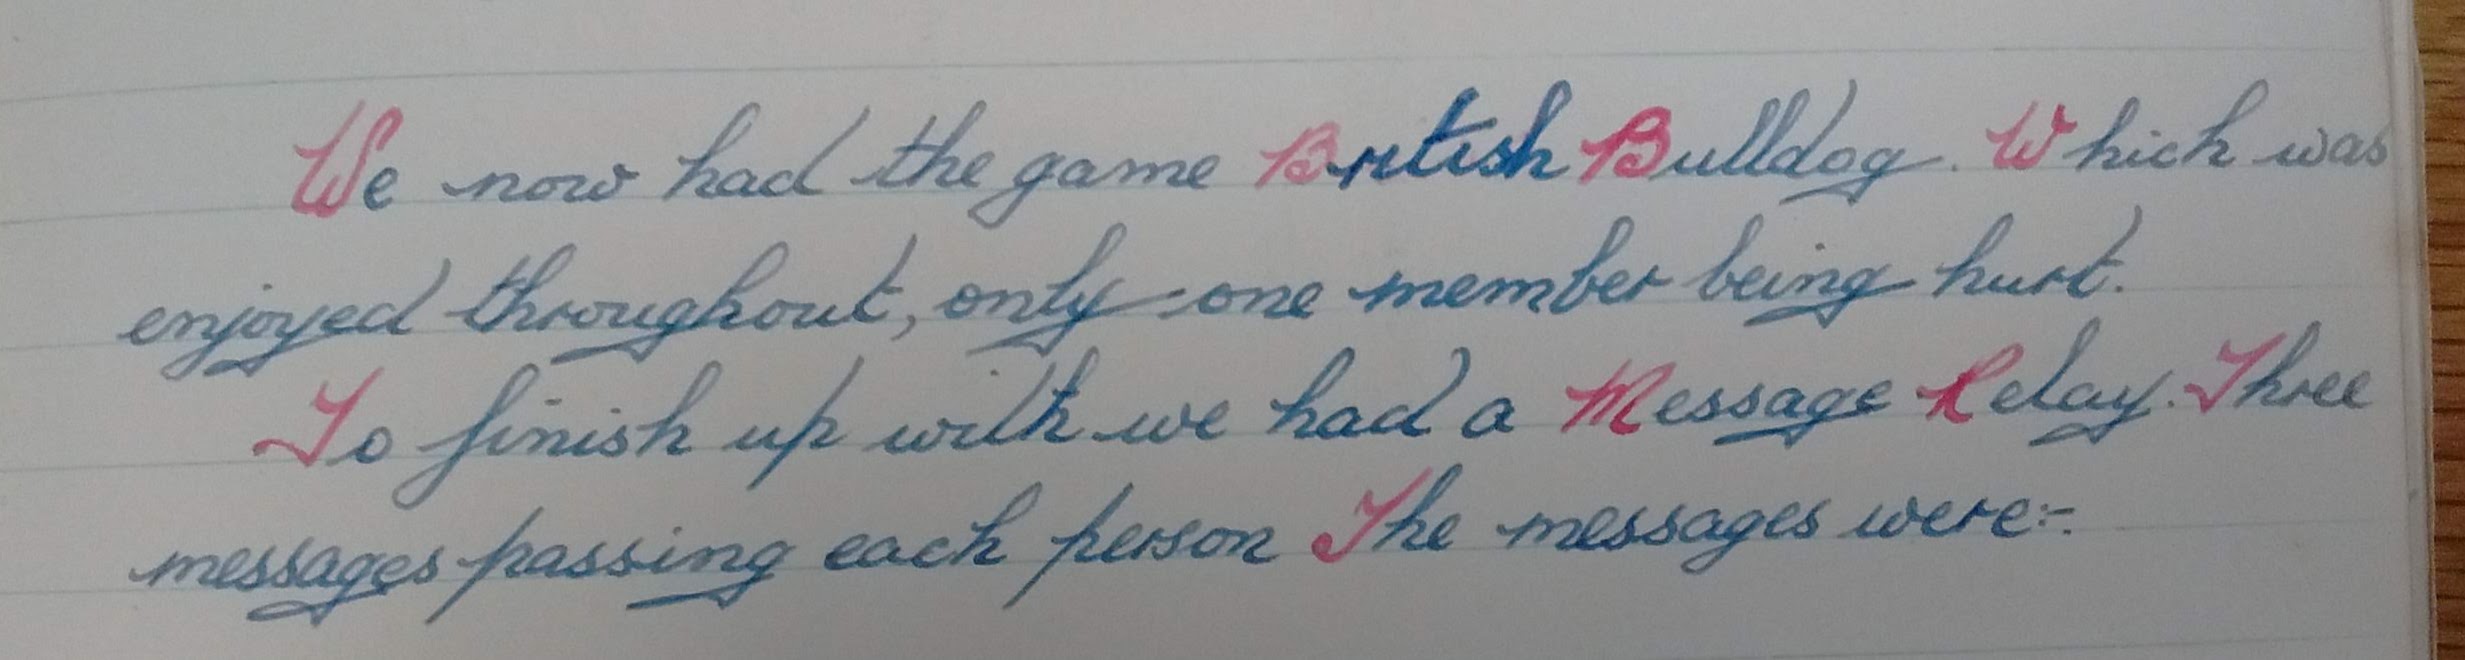 We now had the game British Bulldog. Which was
enjoyed throughout, only one member being hurt.
To finish up with we had a Message Relay. Three
messages passing each person The messages were:-